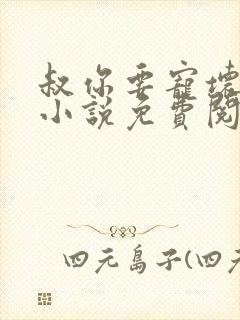 叔你要寵壞
小說免費閱
四元島子(四元